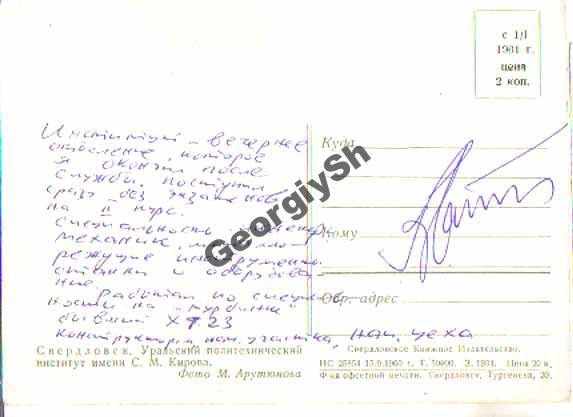 с 1/I
1961 г.
цена
2 коп.
Куда
Институт - вечернее
отделение, которое
я окончил после
службы. поступил
сразу без экзаменов
на II курс.
специальность инженер
механик,
режущие инструменты
станки и оборудова-
ние.
Кому
Работал по специаль-
ности на "турбинке"
бывший
конструктором, нач. участка, нач. цеха
Обр. адрес
GeorgiySh
Свердловск. Уральский политехнический
институт имени С. М. Кирова.
Фото М. Арутюнова
Свердловское Книжное Издательство.
НС 25854 15.9.1960 г. Т. 50000. З. 1934. Цена 20 к.
Ф-ка офсетной печати. Свердловск, Тургенева, 20.